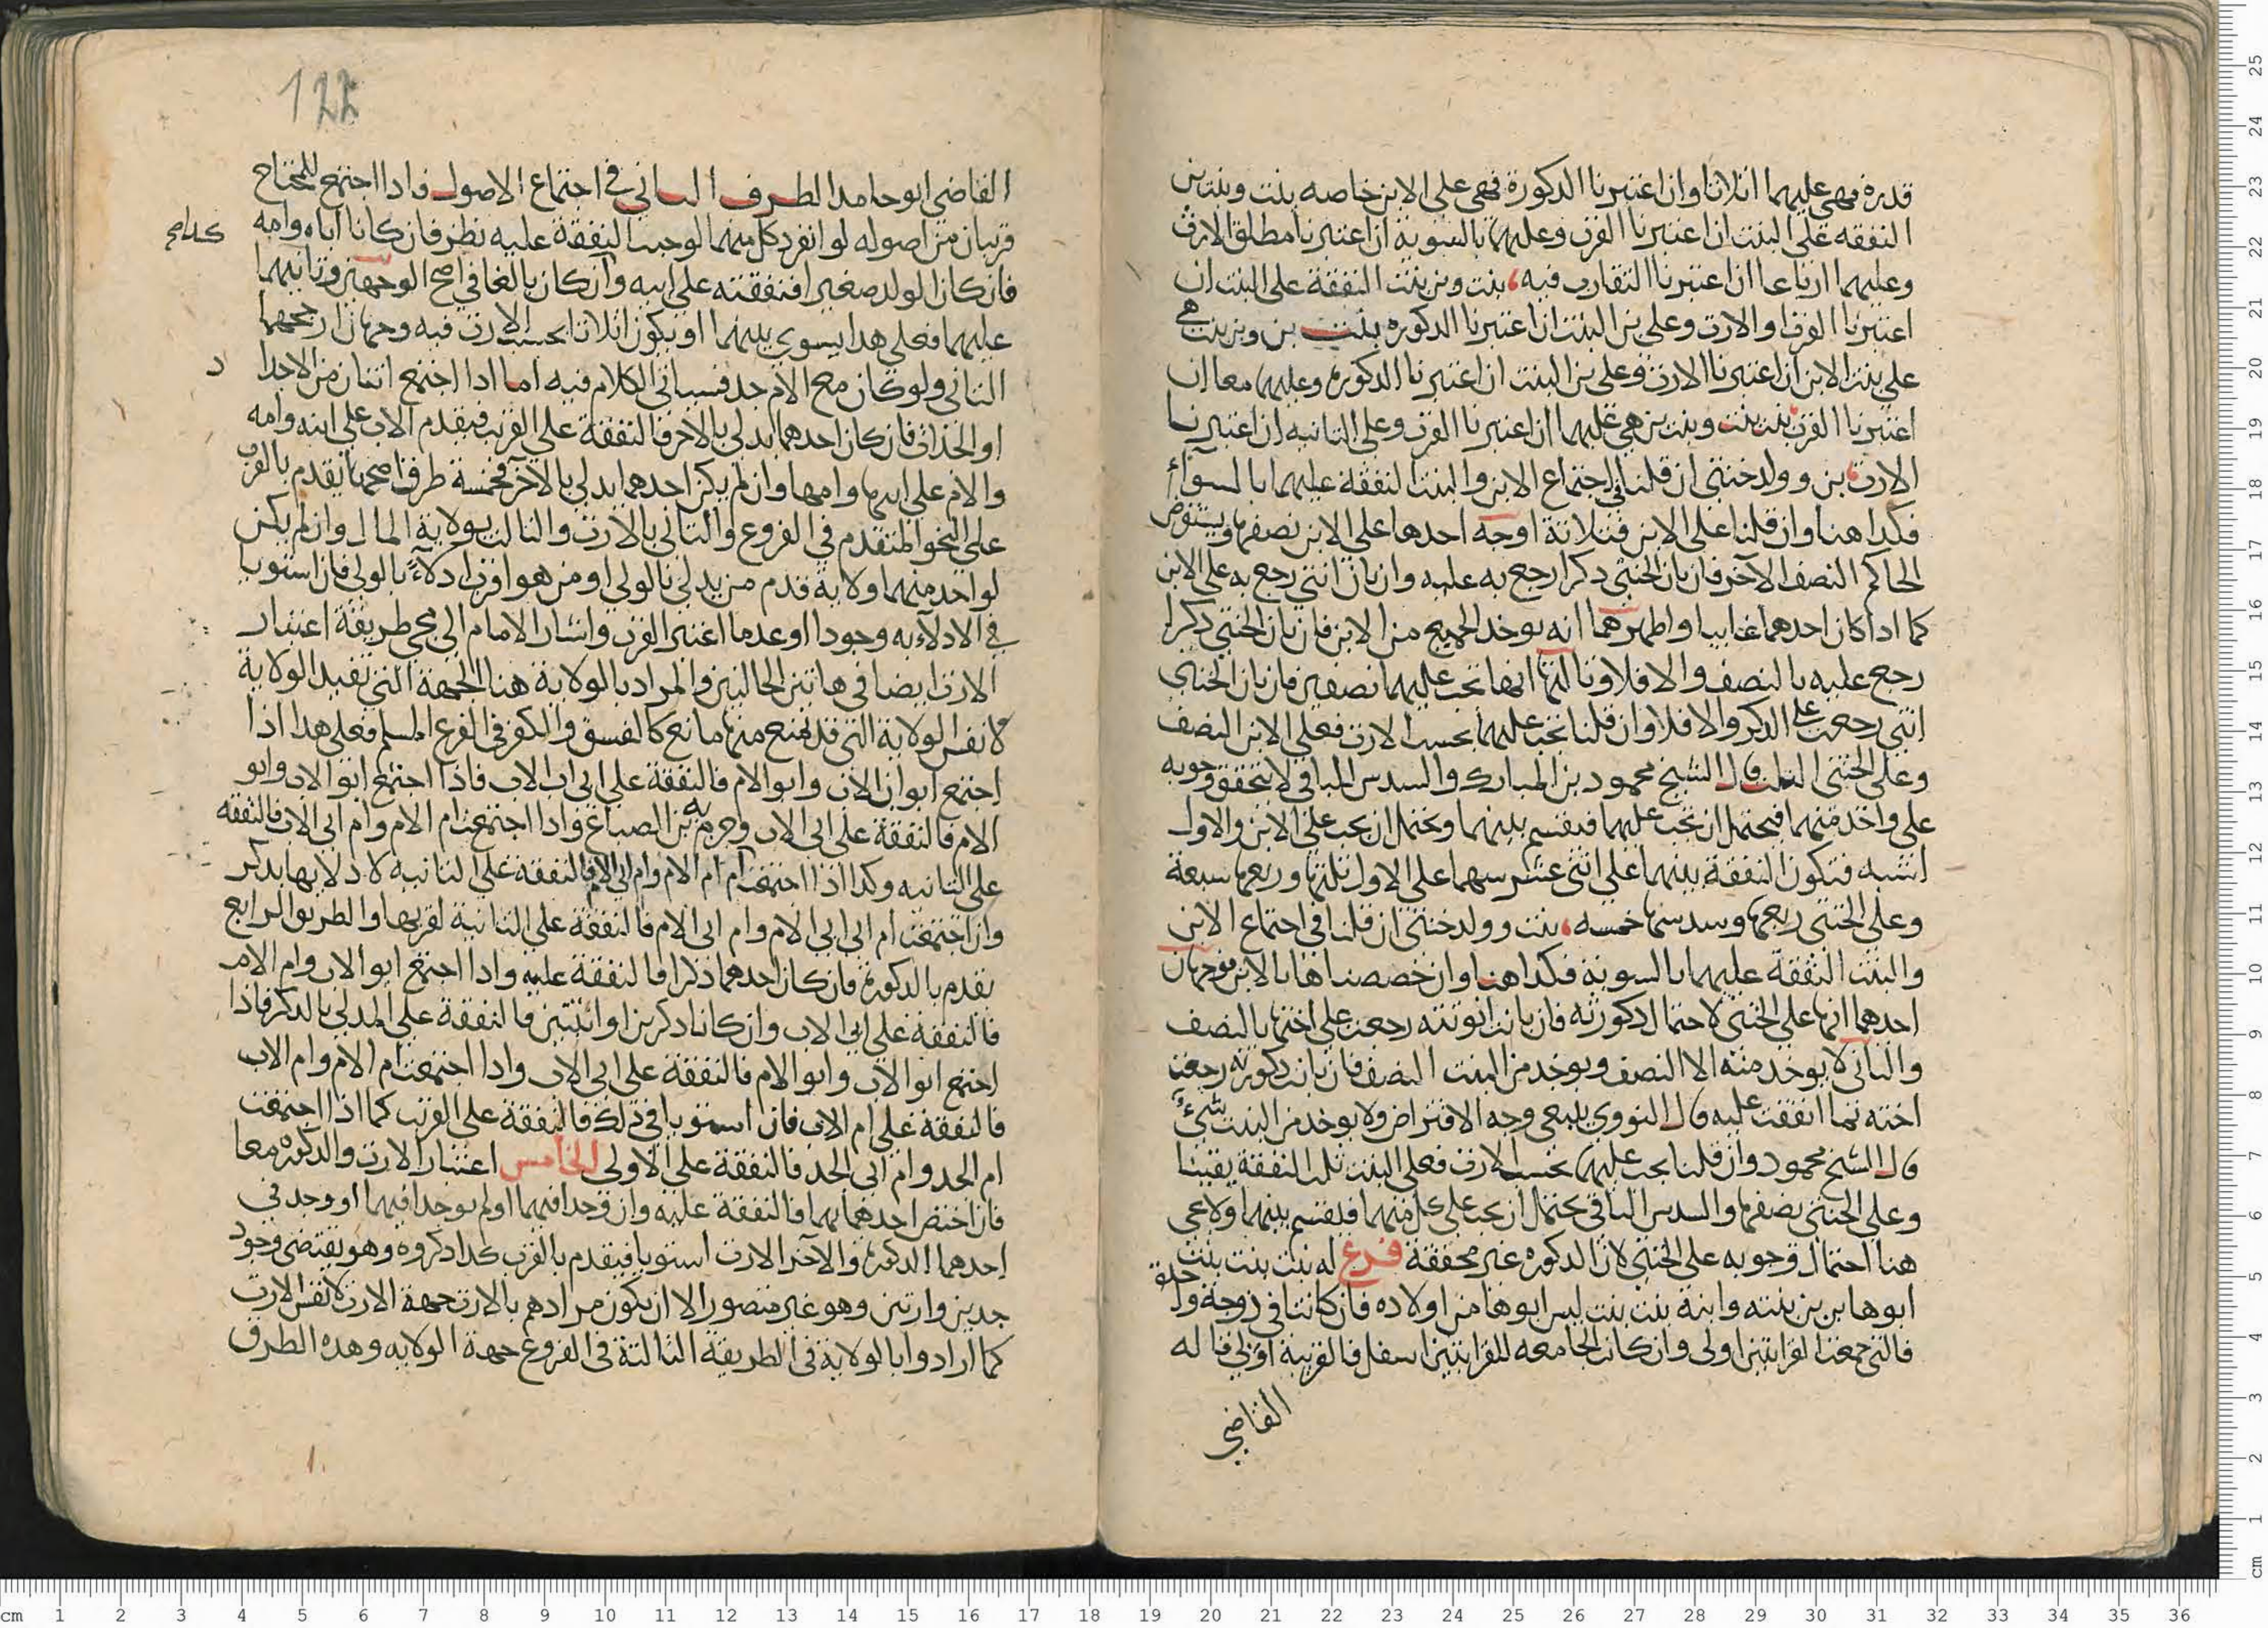 قدره فهي عليهما اثلاثا وان اعتبرنا الدكورة فهي على الابن خاصه بنت وبنت بن
النفقه على البنت ان اعتبرنا القرب وعليهما بالسوية ان اعتبرنا مطلق الارث
وعليهما ارباعا ان اعتبرنا التقارب فيه، بنت وبن بنت النفقة على البنت ان
اعتبرنا القرب او الارث وعلى بن البنت ان اعتبرنا الدكوره بنت بن وبن بنت هي
على بنت الابن ان اعتبرنا الارث وعلى بن البنت ان اعتبرنا الدكورة وعليهما معا ان
اعتبرنا القرب بنت بنت وبنت بن هي عليهما ان اعتبرنا القرب وعلى الثانيه ان اعتبرنا
الارث، بن وولد خنثى ان قلنا في اجتماع الابن والبنت النفقة عليهما بالسوآء
فكدا هنا وان قلنا على الابن فثلاثة اوجه احدها على الابن نصفها ويستقرض
الحاكم النصف الآخر فان بان الخنثى دكرا رجع به عليه وان بان انثى رجع به على الابن
كما اداكان احدهما غايبا واظهرهما انه يوخد الجميع من الابن فان بان الخنثى دكرا
رجع عليه بالنصف والا فلا وثالثها انها تجب عليهما نصفين فان بان الخنثى
انثى رجعت على الدكر والا فلا وان قلنا تجب عليهما بحسب الارث فعلى الابن النصف
وعلى الخنثى الثلث قال الشيخ محمود بن المبارك والسدس الباقي لا يتحقق وجوبه
على واحد منهما فيحتمل ان تجب عليهما فيقسم بينهما ويحتمل ان يجب على الابن والاول
اشبه فتكون النفقة بينهما على اثنى عشر سهما على الاول ثلثها وربعها سبعة
وعلى الخنثى ربعها وسدسها خمسه، بنت وولد خنثى ان قلنا في اجتماع الابن
والبنت النفقة عليهما بالسوية فكدا هنا وان خصصناها بالابن فوجهان
احدهما انها على الخنثى لاحتمال دكورته فان بانت انوثته رجعت على اختها بالنصف
والثاني لا يوخد منه الا النصف ويوخد من البنت النصف فان بانت دكورته رجعت
اخته بما انفقت عليه قال النووي ينبغي وجه الاقتراض ولا يوخد من البنت شيء
قال الشيخ محمود وان قلنا يجب عليهما بحسب الارث فعلى البنت ثلث النفقة يقينا
وعلى الخنثى نصفها والسدس الباقي يحتمل ان يجب على كل منهما فيقسم بينهما ولا يجي
هنا احتمال وجوبه على الخنثى لان الدكوره غير محققة فرع له بنت بنت بنت
ابوها بن بن بنته وابنة بنت بنت ليس ابوها من اولاده فان كانتا في درجة واحدة
فالتي جمعت القرابتين اولى وان كانت الجامعه للقرابتين اسفل فالقريبة اولى قاله
القاضي
122
القاضي ابو حامد الطرف الثاني في اجتماع الاصول فادا اجتمع للمحتاج
قريبان من اصوله لو انفرد كل منهما لوجبت النفقة عليه نظر فان كانا اباه وامه
فان كان الولد صغيرا فنفقته على ابيه وان كان بالغا في اصح الوجهين وثانيهما
عليهما فعلى هدا يسوي بينهما او يكون اثلاثا بحسب الارث فيه وجهان ارجحهما
الثاني ولو كان مع الام جد فسياتي الكلام فيه اما ادا اجتمع اثنان من الاجدا
د
او الجدات فان كان احدهما يدلى بالاخر فالنفقة على القريب فيقدم الاب على ابيه وامه
والام على ابيها وامها وان لم يكن احدهما يدلي بالآخر فخمسة طرق اصحها يقدم بالقرب
على النحو المتقدم في الفروع والثاني بالارث والثالث بولاية المال وان لم يكن
لواحد منهما ولاية قدم من يدلي بالولي او من هو اقرب ادلآء بالولي فان استويا
في الادلآء به وجودا او عدما اعتبر القرب واشار الامام الى مجي طريقة اعتبار
الارث ايضا في هاتين الحالتين والمراد بالولاية هنا الجهة التي تفيد الولاية
لا نفس الولاية التي قد يمنع منها مانع كالفسق والكفر في الفرع المسلم فعلى هدا اذا
اجتمع ابو اب الاب وابو الام فالنفقة على ابي اب الاب فاذا اجتمع ابو الاب وابو
الام فالنفقة على ابي الاب وجزم به بن الصباغ وادا اجتمعت ام الام وام ابي الاب فالنفقه
على الثانيه وكدا اذا اجتمعت ام ام الام وام ابي الام فالنفقة على الثانيه لادلايها بدكر
وان اجتمعت ام ابي ابي الام وام ابي الام فالنفقة على الثانية لقربها والطريق الرابع
يقدم بالدكورة فان كان احدهما ذكرا فالنفقة عليه وادا اجتمع ابو الاب وام الام
فالنفقة على ابي الاب وان كانا دكرين او انثيين فالنفقة على المدلي بالدكر فاذا
اجتمع ابو الاب وابو الام فالنفقة على ابي الاب وادا اجتمعت ام الام وام الاب
فالنفقة على ام الاب فان استويا في دلك فالنفقة على القريب كما اذا اجتمعت
ام الجد وام ابي الجد فالنفقة على الاولى الخامس اعتبار الارث والدكوره معا
فان اختص احدهما بهما فالنفقة عليه وان وجدا فيهما او لم يوجدا فيهما او وجد في
احدهما الدكورة والآخر الارث استويا فيقدم بالقرب كدا دكروه وهو يقتضي وجود
جدين وارثين وهو غير متصور الا ان يكون مرادهم بالارث جهة الارث لا نفس الارث
كما ارادوا بالولاية في الطريقة الثالثة في الفروع جهة الولايه وهده الطرق